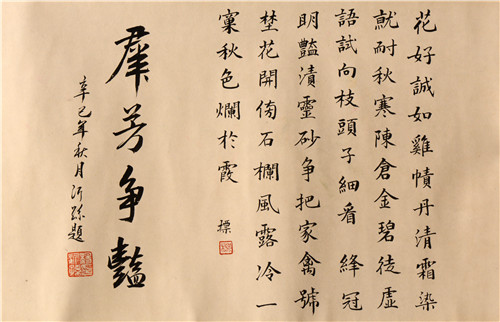 花好誠如雞幘丹清霜染
就耐秋寒陳倉金碧徒虛
語試向枝頭子細看 絳冠
明豔漬靈砂争把家禽號
埜花開傍石欄風露冷一
窠秋色爛於霞
羣芳争豔
辛巳年秋月沂孫題